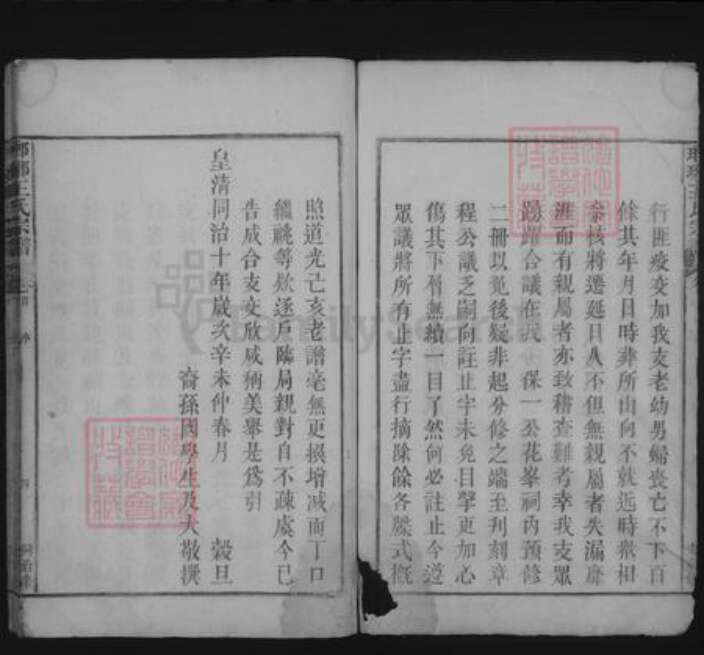 行匪疫交加我支老幼男婦喪亡不下百
餘其年月日時葬所山向不就近時眾相
核將遷延日久不但無親屬者失漏靡
涯而有親屬者亦致稽查難考幸我支眾
踴躍合議在我 保一公花峯祠內預修
二冊以免後疑非起分修之端至刋刻章
程公議乏嗣向註止字未免目擊更加心
傷其下層無續一目了然何必註止今遵
眾議將所有止字盡行摘除餘各牒式槪
照道光己亥老譜毫無更損增减而丁口
繼祧等欵逐戶臨局親對自不疎虞今已
告成合支交欣咸稱美舉是爲引
皇清同治十年歲次辛未仲春月 穀旦
裔孫國學生及大敬撰
琅琊王氏宗譜